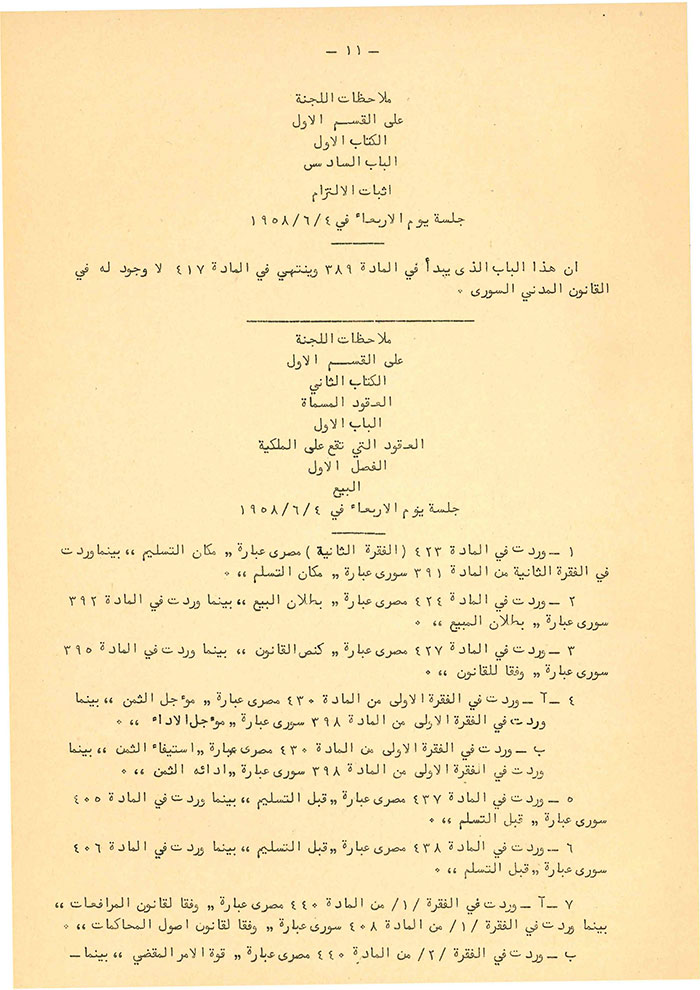 — ١١ —
ملاحظات اللجنة
على القسم الاول
الكتاب الاول
الباب السادس
اثبات الالتزام
جلسة يوم الاربعاء في ١٩٥٨/٦/٤
ان هذا الباب الذى يبدأ في المادة ٣٨٩ وينتهي في المادة ٤١٧ لا وجود له في
القانون المدني السورى ٠
ملاحظات اللجنة
على القسم الاول
الكتاب الثاني
العقود المسماة
الباب الاول
العقود التي تقع على الملكية
الفصل الاول
البيع
جلسة يوم الاربعاء في ١٩٥٨/٦/٤
١ – وردت في المادة ٤٢٣ (الفقرة الثانية) مصرى عبارة „ مكان التسليم ،، بينما وردت
في الفقرة الثانية من المادة ٣٩١ سورى عبارة „ مكان التسلم ،، ٠
٢ – وردت في المادة ٤٢٤ مصرى عبارة „ بطلان البيع ،، بينما وردت في المادة ٣٩٢
سورى عبارة „ بطلان المبيع ،، ٠
٣ – وردت في المادة ٤٢٧ مصرى عبارة „ كنص القانون ،، بينما وردت في المادة ٣٩٥
سورى عبارة „ وفقا للقانون ،، ٠
٤ – آ – وردت في الفقرة الاولى من المادة ٤٣٠ مصرى عبارة „ موءجل الثمن ،، بينما
وردت في الفقرة الاولى من المادة ٣٩٨ سورى عبارة „ موءجل الاداء ،، ٠
ب – وردت في الفقرة الاولى من المادة ٤٣٠ مصرى عبارة „ استيفاء الثمن ،، بينما
وردت في الفقرة الاولى من المادة ٣٩٨ سورى عبارة „ ادائه الثمن ،، ٠
٥ – وردت في المادة ٤٣٧ مصرى عبارة „ قبل التسليم ،، بينما وردت في المادة ٤٠٥
سورى عبارة „ قبل التسلم ،، ٠
٦ – وردت في المادة ٤٣٨ مصرى عبارة „ قبل التسليم ،، بينما وردت في المادة ٤٠٦
سورى عبارة „ قبل التسلم ،، ٠
٧ – آ – وردت في الفقرة /١/ من المادة ٤٤٠ مصرى عبارة „ وفقا لقانون المرافعات ،،
بينما وردت في الفقرة /١/ من المادة ٤٠٨ سورى عبارة „ وفقا لقانون اصول المحاكمات ،، ٠
ب – وردت في الفقرة /٢/ من المادة ٤٤٠ مصرى عبارة „ قوة الامر المقضي ،، بينما –